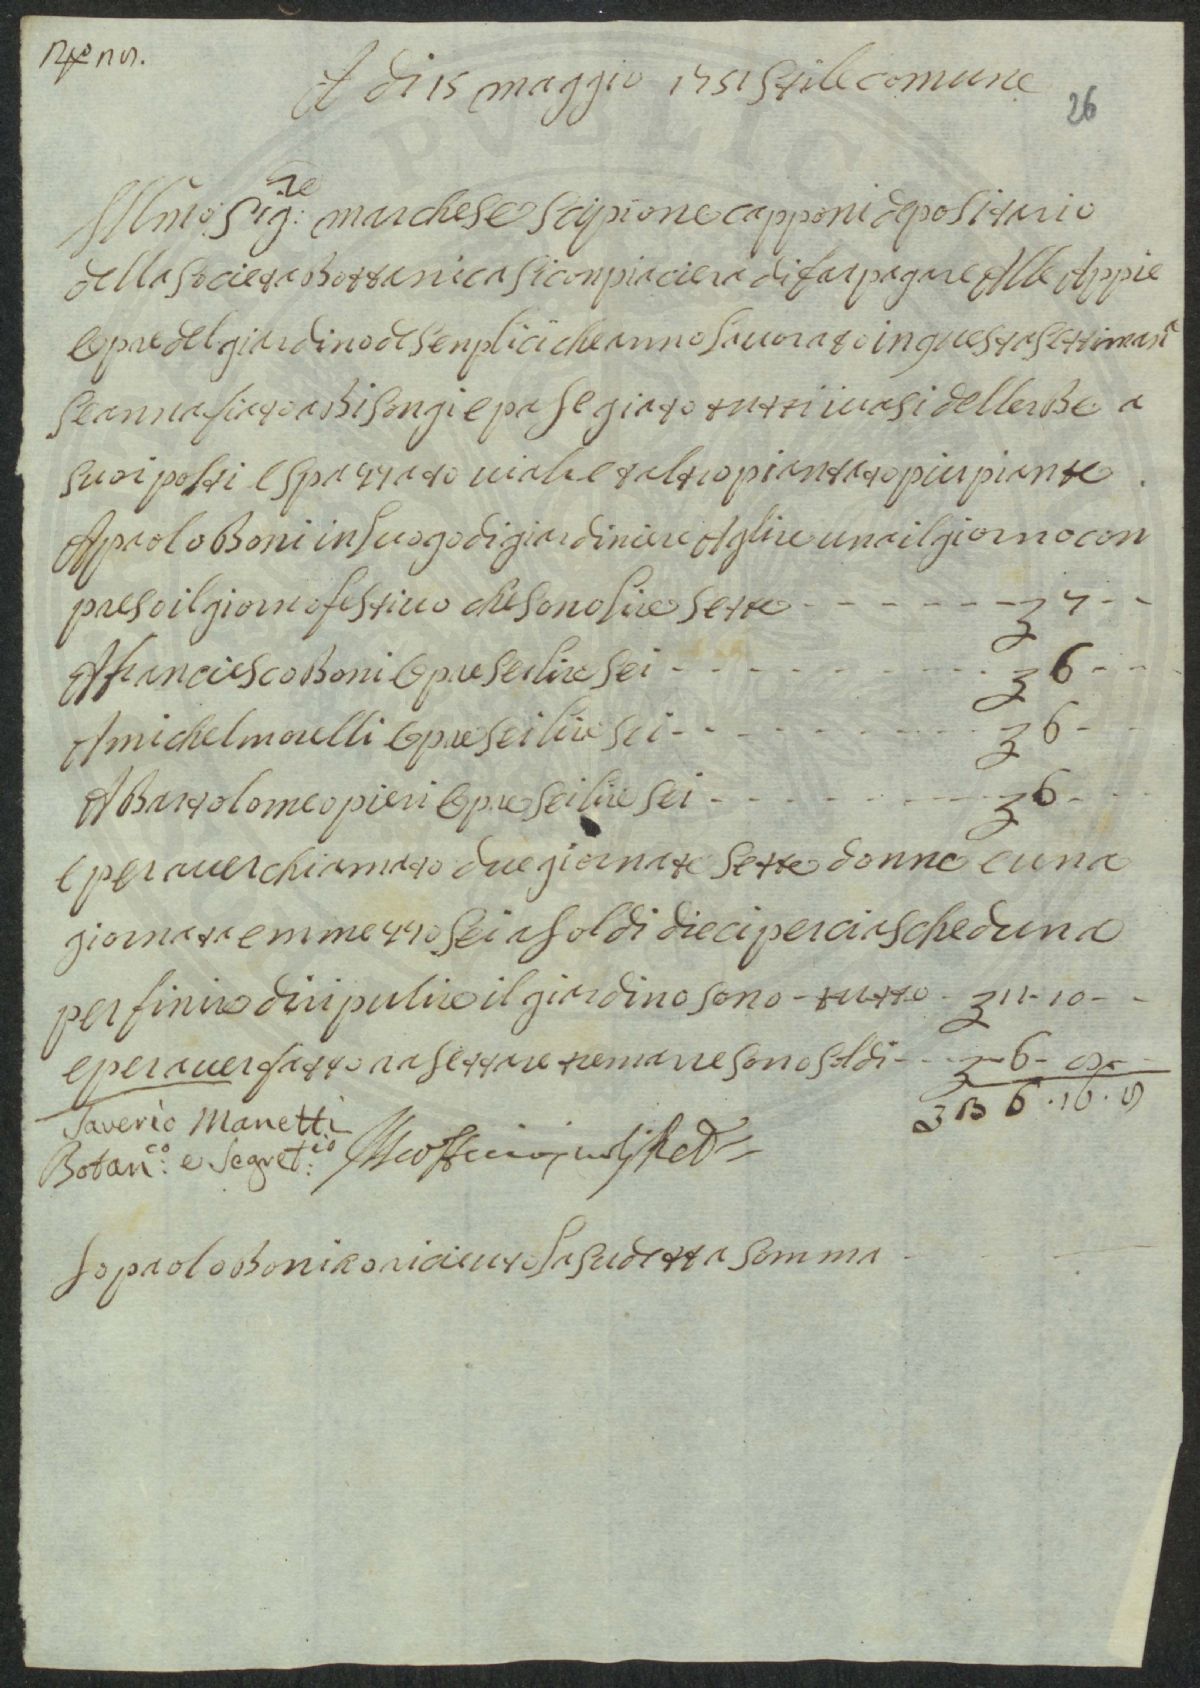 A di 15 maggio 1751 stile comune
26
Illmo Sig:re marchese Scipione capponi depositario
della societa Bottanica si conpiaciera di far pagare Alle Appie
Opre del giardino de senplici che anno lauorato in questa settimana
se annafiato a Bisongi e pasegiato tutti i uasi dellerBe a
suoi posti e spazzato uiale et altro piantato piu piante
A paolo Boni in luogo di giardiniere A lire una il giorno con
preso il giorno festiuo che sono lire sette - - - - - - 7 - -
A franciesco Boni Opre sei lire sei - - - - - - - - 6 - - -
A michel morelli Opre sei lire sei - - - - - - - - 6 - -
A Bartolomeo pieri Opre sei lire sei - - - - - - - 6 - - -
e per auer chiamato due giornate sette donne e una
giornata e mmezzo sei a soldi dieci per ciascheduna
per finire di ripulire il giardino sono tutto - 11 - 10 - -
e per auer fatto rasettare tre marre sono soldi - - - 6 -
Saverio Manetti
Botan:co e Segret:io
Io paolo Boni o riceuuto la sudetta somma